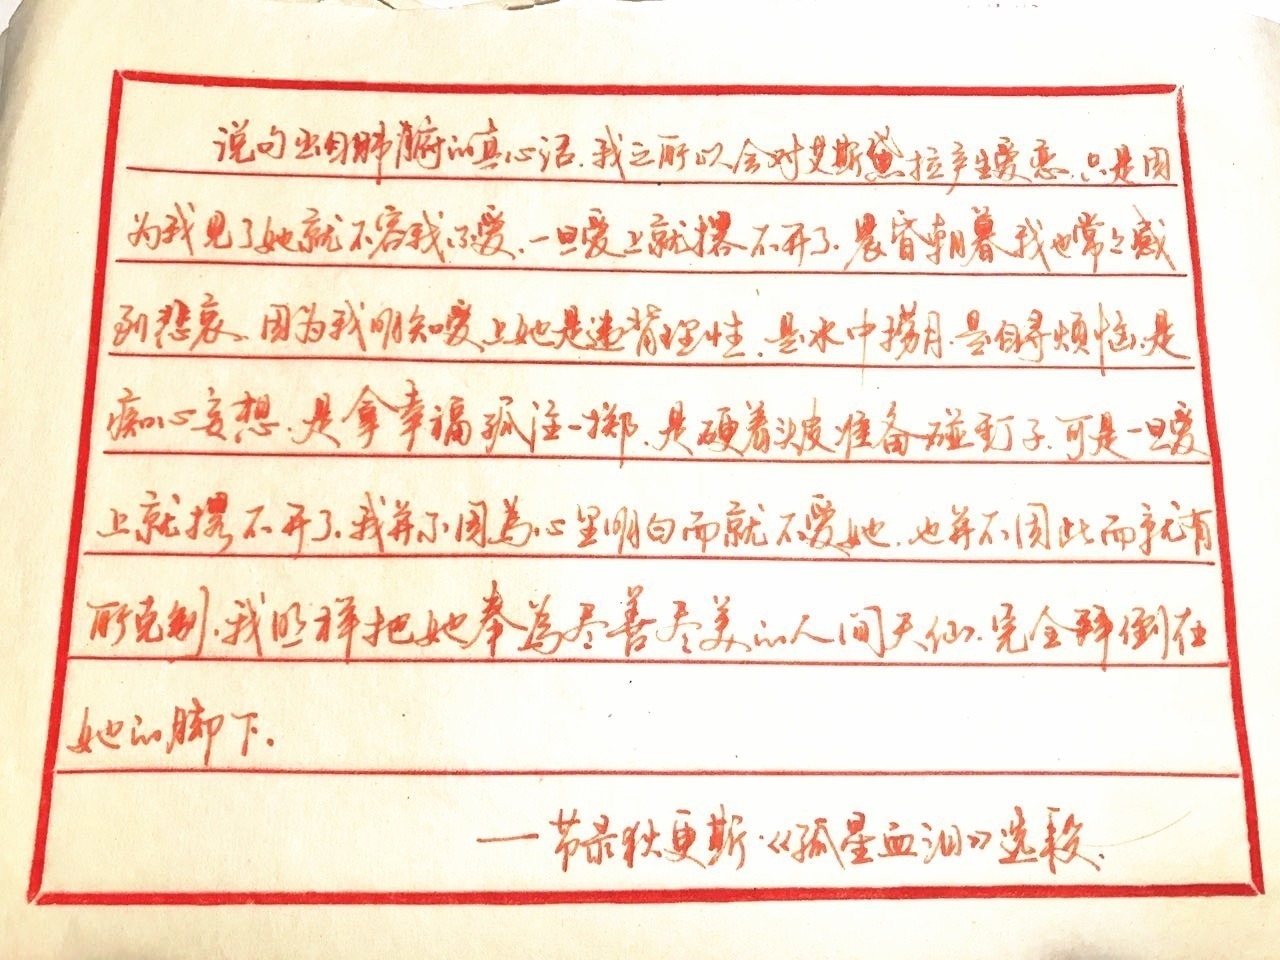 说句出自肺腑的真心话，我之所以会对艾斯黛拉产生爱恋，只是因
为我见了她就不容我不爱，一旦爱上就撂不开了，晨昏朝暮我也常々感
到悲哀，因为我明知爱上她是违背理性，是水中捞月，是自寻烦恼，是
痴心妄想，是拿幸福孤注一掷，是硬着头皮准备碰钉子，可是一旦爱
上就撂不开了，我并不因為心里明白而就不爱她，也并不因此而就有
所克制，我照样把她奉為尽善尽美的人间天仙，完全拜倒在
她的脚下。
——节录狄更斯《孤星血泪》选段